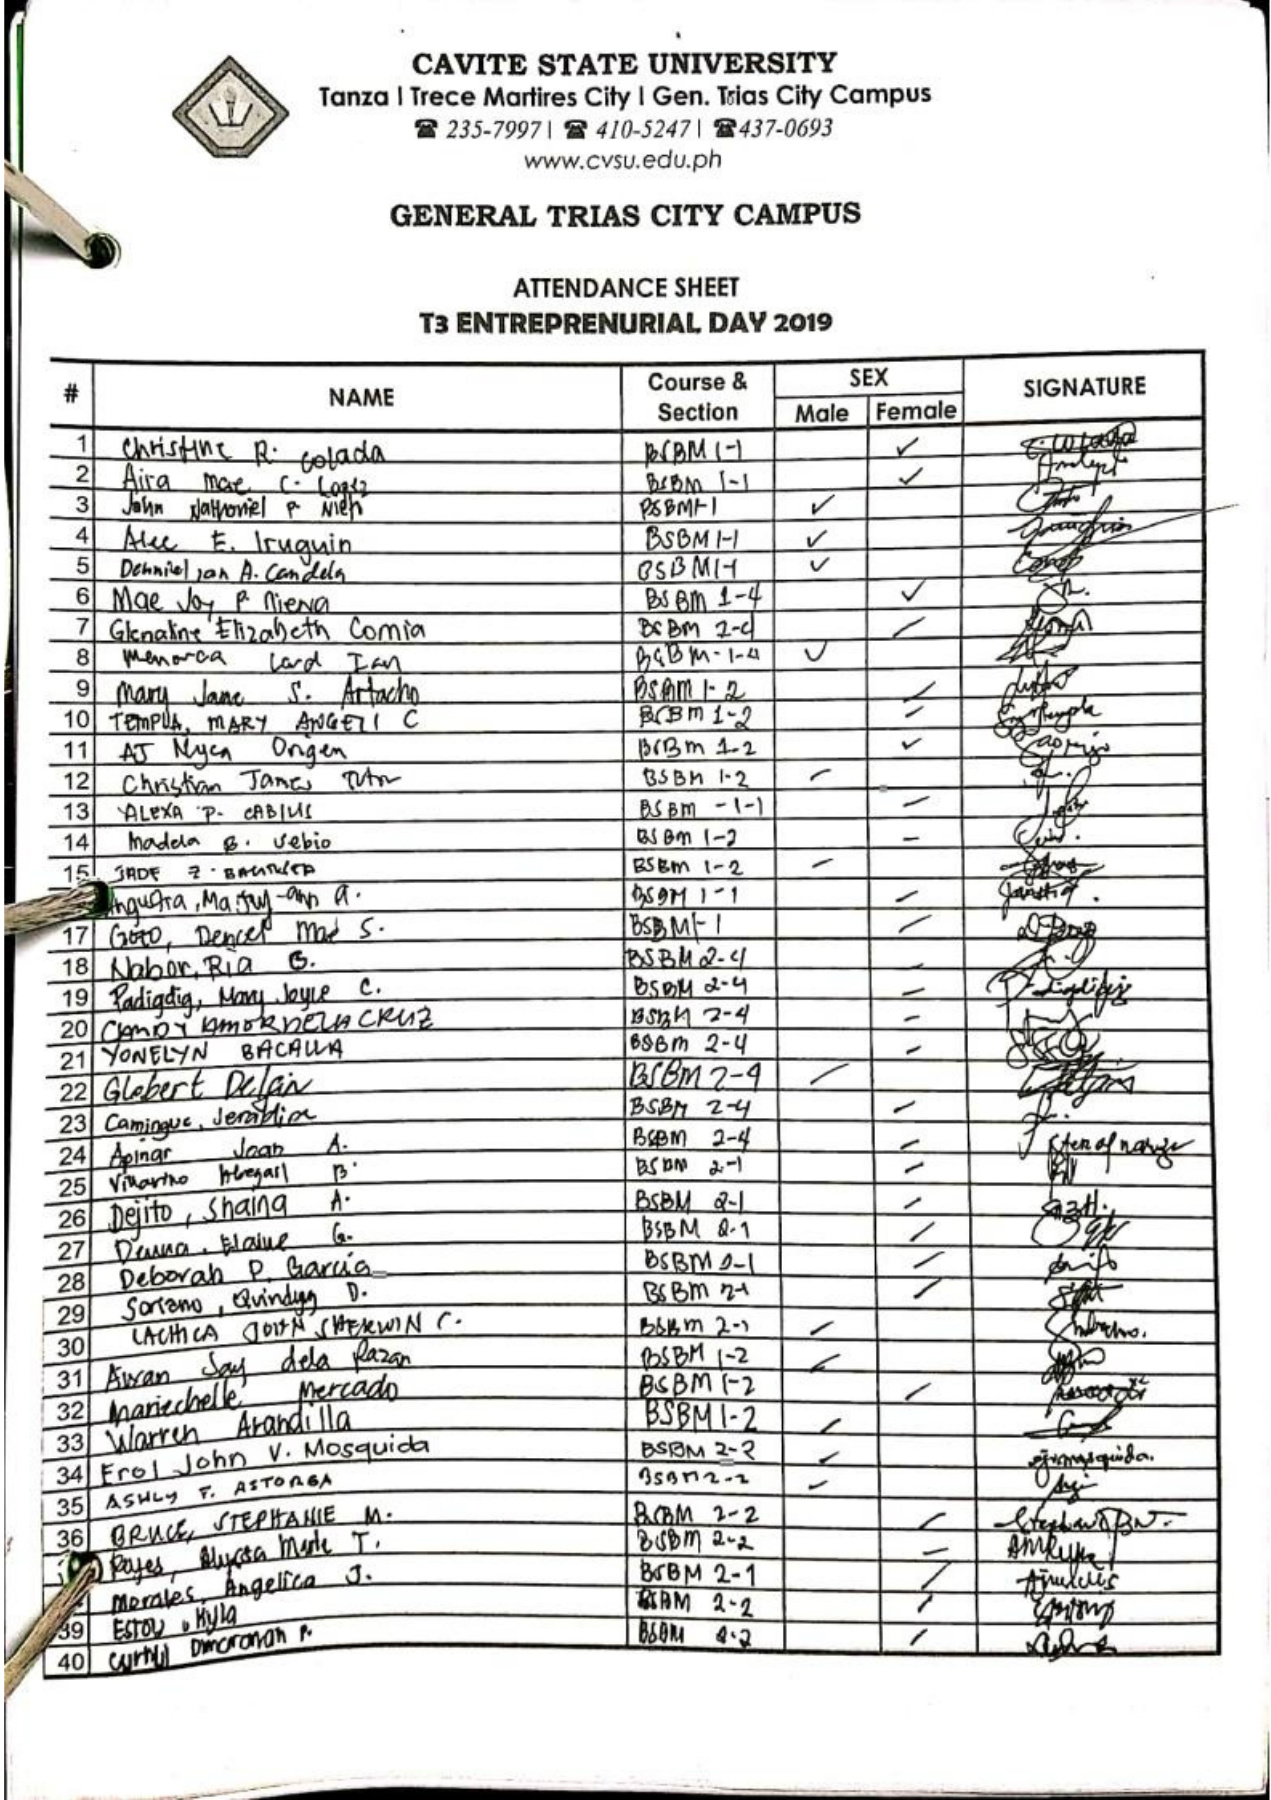 CAVITE STATE UNIVERSITY
Tanza | Trece Martires City | Gen. Trias City Campus
☎ 235-7997 | ☎ 410-5247 | ☎ 437-0693
www.cvsu.edu.ph
GENERAL TRIAS CITY CAMPUS
ATTENDANCE SHEET
T3 ENTREPRENURIAL DAY 2019
# NAME Course & Section SEX Male Female SIGNATURE
1 Christine R. Colada BSBM 1-1 ✓
2 Aira Mae C. Lopez BSBM 1-1 ✓
3 John Nathaniel P. BSBM 1-1 ✓
4 Alec E. Iruguin BSBM 1-1 ✓
5 A. Candela BSBM 1-1 ✓
6 Mae Joy P. Nieva BSBM 1-4 ✓
7 Glenaline Elizabeth Comia BSBM 2-4
8 Menorca Lard Ian BSBM-1-4 ✓
9 Mary Jane S. Artacho BSBM 1-2
10 TEMPLA, MARY ANGELI C BSBM 1-2
11 AJ Nyca Origen BSBM 1-2 ✓
12 Christian James BSBM 1-2
13 ALEXA P. CABIJUS BSBM -1-1
14 Madela B. Sebio BSBM 1-2
15 JADE Z. BSBM 1-2
Ma. Joy-ann A. BSBM 1-1
17 Goto, Dencel Mae S. BSBM 1-1
18 Nabor, Ria G. BSBM 2-4
19 Padigdig, Mary Joyce C. BSBM 2-4
20 CANDY AMOR DELA CRUZ BSBM 2-4
21 YONELYN BACALLA BSBM 2-4
22 Glebert Delfin BSBM 2-4
23 Camingue, Jeraldine BSBM 2-4
24 Apinar Joan A. BSBM 2-4
25 Villarino Abegail B. BSBM 2-1
26 Dejito, Shaina A. BSBM 2-1
27 Elaine G. BSBM 2-1
28 Deborah P. Garcia BSBM 2-1
29 Soriano, D. BSBM 2-1
30 LACHICA JOHN SHERWIN C. BSBM 2-1
31 Awan Jay dela Razan BSBM 1-2
32 Mariechelle Mercado BSBM 1-2
33 Warren Arandilla BSBM 1-2
34 Erol John V. Mosquida BSBM 2-2 ejvmosquida.
35 ASHLY F. ASTORGA BSBM 2-2
36 BRUCE, STEPHANIE M. BSBM 2-2
Reyes, Alyssa Marie T. BSBM 2-2
Morales, Angelica J. BSBM 2-1
39 Kyla BSBM 2-2
40 P. BSBM 2-2